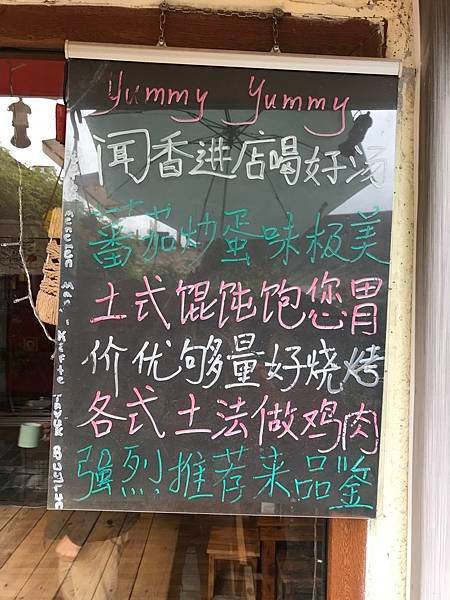 Yummy Yummy
闻香进店喝好汤
蕃茄炒蛋味极美
土式馄饨饱您胃
价优够量好烧烤
各式土法做鸡肉
强烈推荐来品鉴
menemen Manti Köfte Tavuk